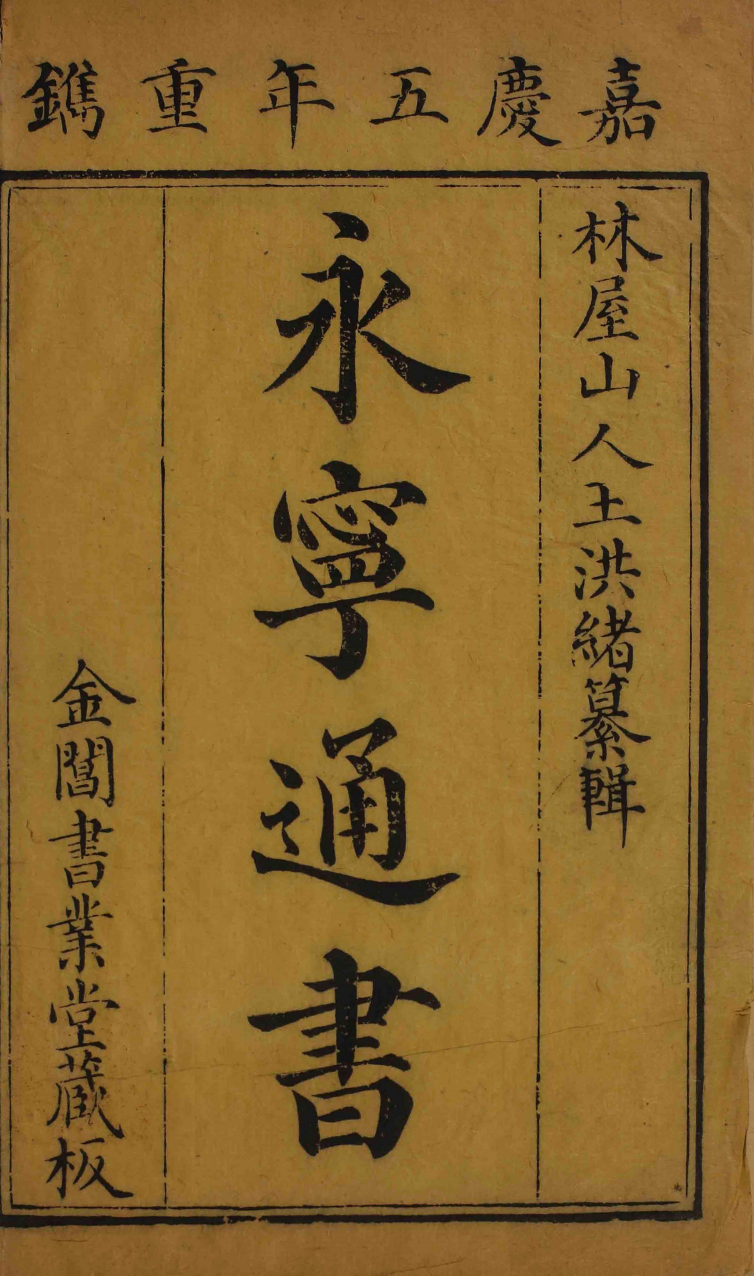 嘉慶五年重鐫
林屋山人王洪緒纂輯
永寧通書
金閶書業堂藏板